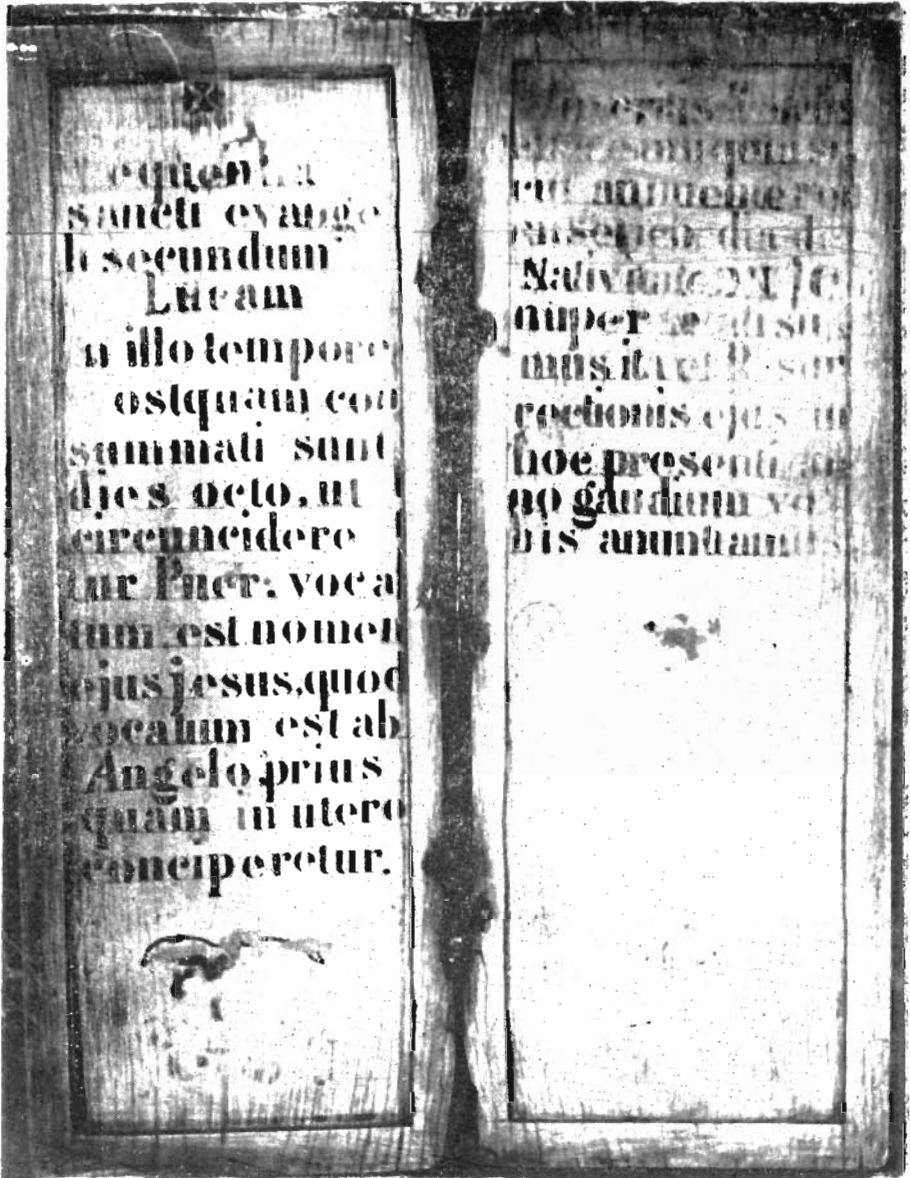 equentia
sancti evange
li secundum
Lucam
n illo tempore
ostquam con
summati sunt
dies octo, ut
circuncidere
tur Puer: voca
tum est nomen
ejus jesus, quod
vocatum est ab
Angelo prius
quam in utero
conciperetur.
annuente
Nativitate
nuper
mus ita et Resur
rectionis ejus in
hoc presenti an
no gaudium vo
bis anuntiamus